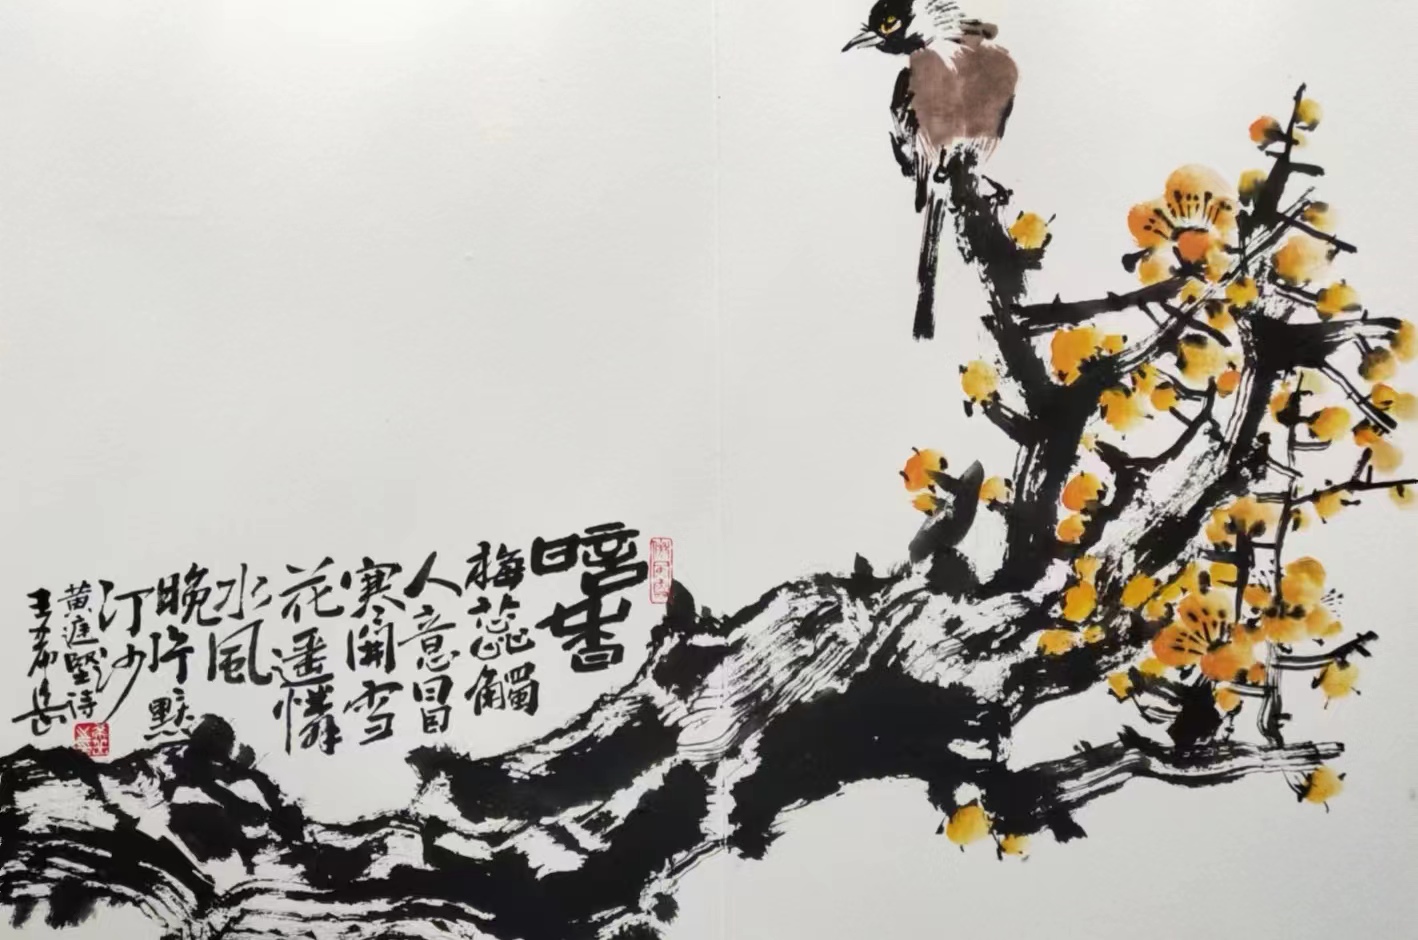 暗香
梅蕊觸
人意冒
寒開雪
花遥憐
水風
晚片點
汀沙
黄庭堅诗